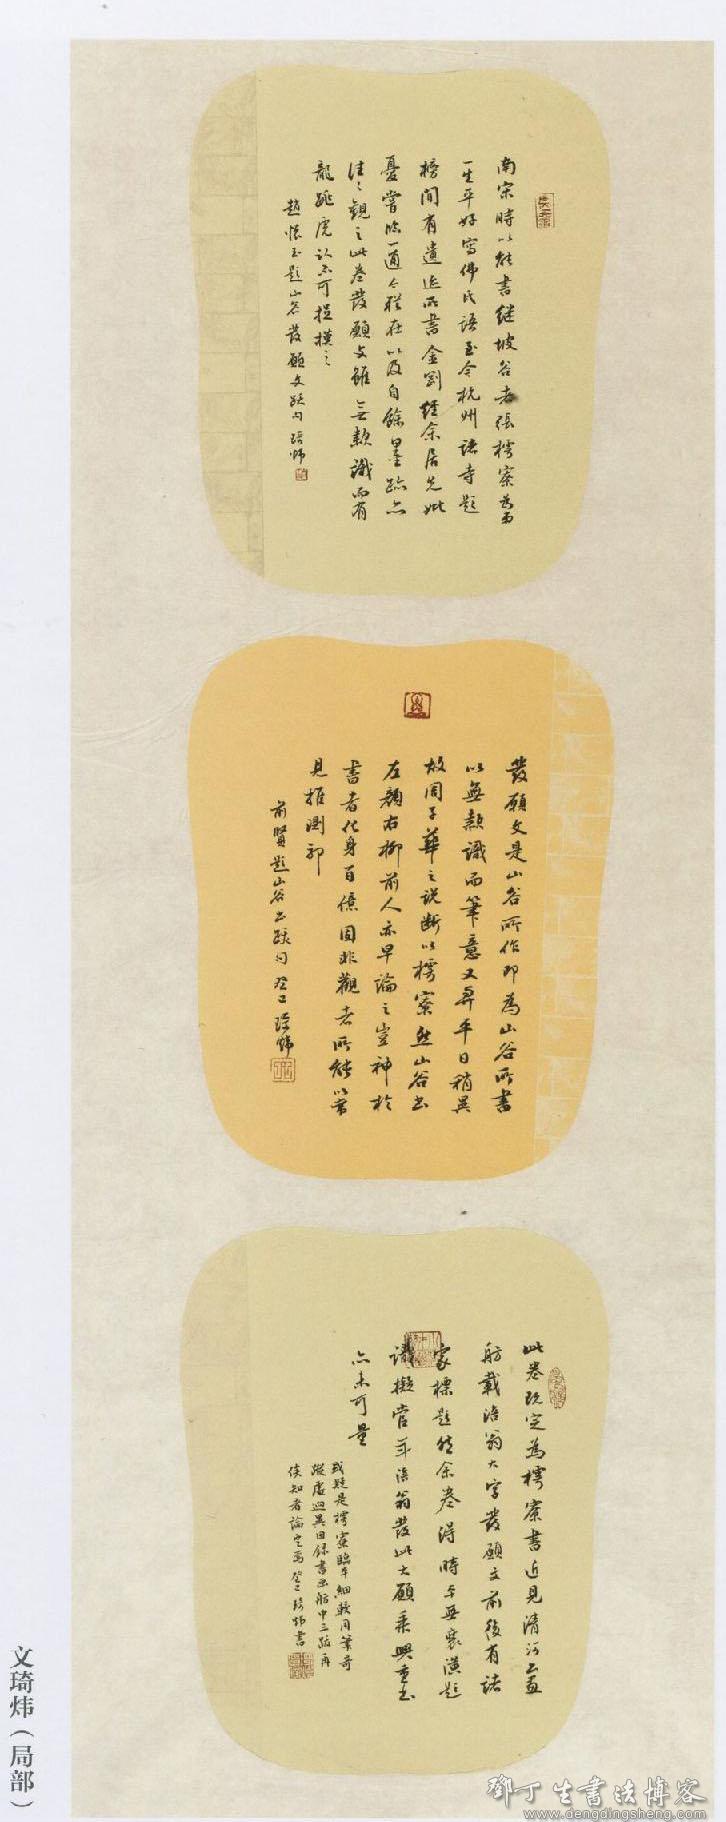 南宋時以能書繼坡谷者張樗寮為甲
一生平好寫佛氏語至今杭州諸寺題
榜間有遺迹所書金剛經余居先妣
憂嘗臨一通今猶在以及自餘墨跡亦
往往觀之此卷發願文雖無款識而有
龍跳虎臥不可捉摸之
趙懷玉題山谷發願文跋句 琦煒
發願文是山谷所作即為山谷所書
以無款識而筆意又與平日稍異
故周子華之說斷以樗寮然山谷書
左顏右柳前人亦早論之豈神於
書者化身百億固非觀者所能以常
見推測耶
前賢題山谷書跋句 癸巳琦煒
此卷既定為樗寮書近見清河書畫
舫載涪翁大字發願文前後有諸
家標題 余卷 得時 無裝潢題
識擬當年涪翁發此大願乘興重書
亦未可量
或疑是樗寮臨本細驗用筆奇
縱處迥異因錄書畫舫中三跋再
俟知者論定焉 癸巳琦煒書
文琦炜（局部）
鄧丁生書法博客
www.dengdingsheng.com